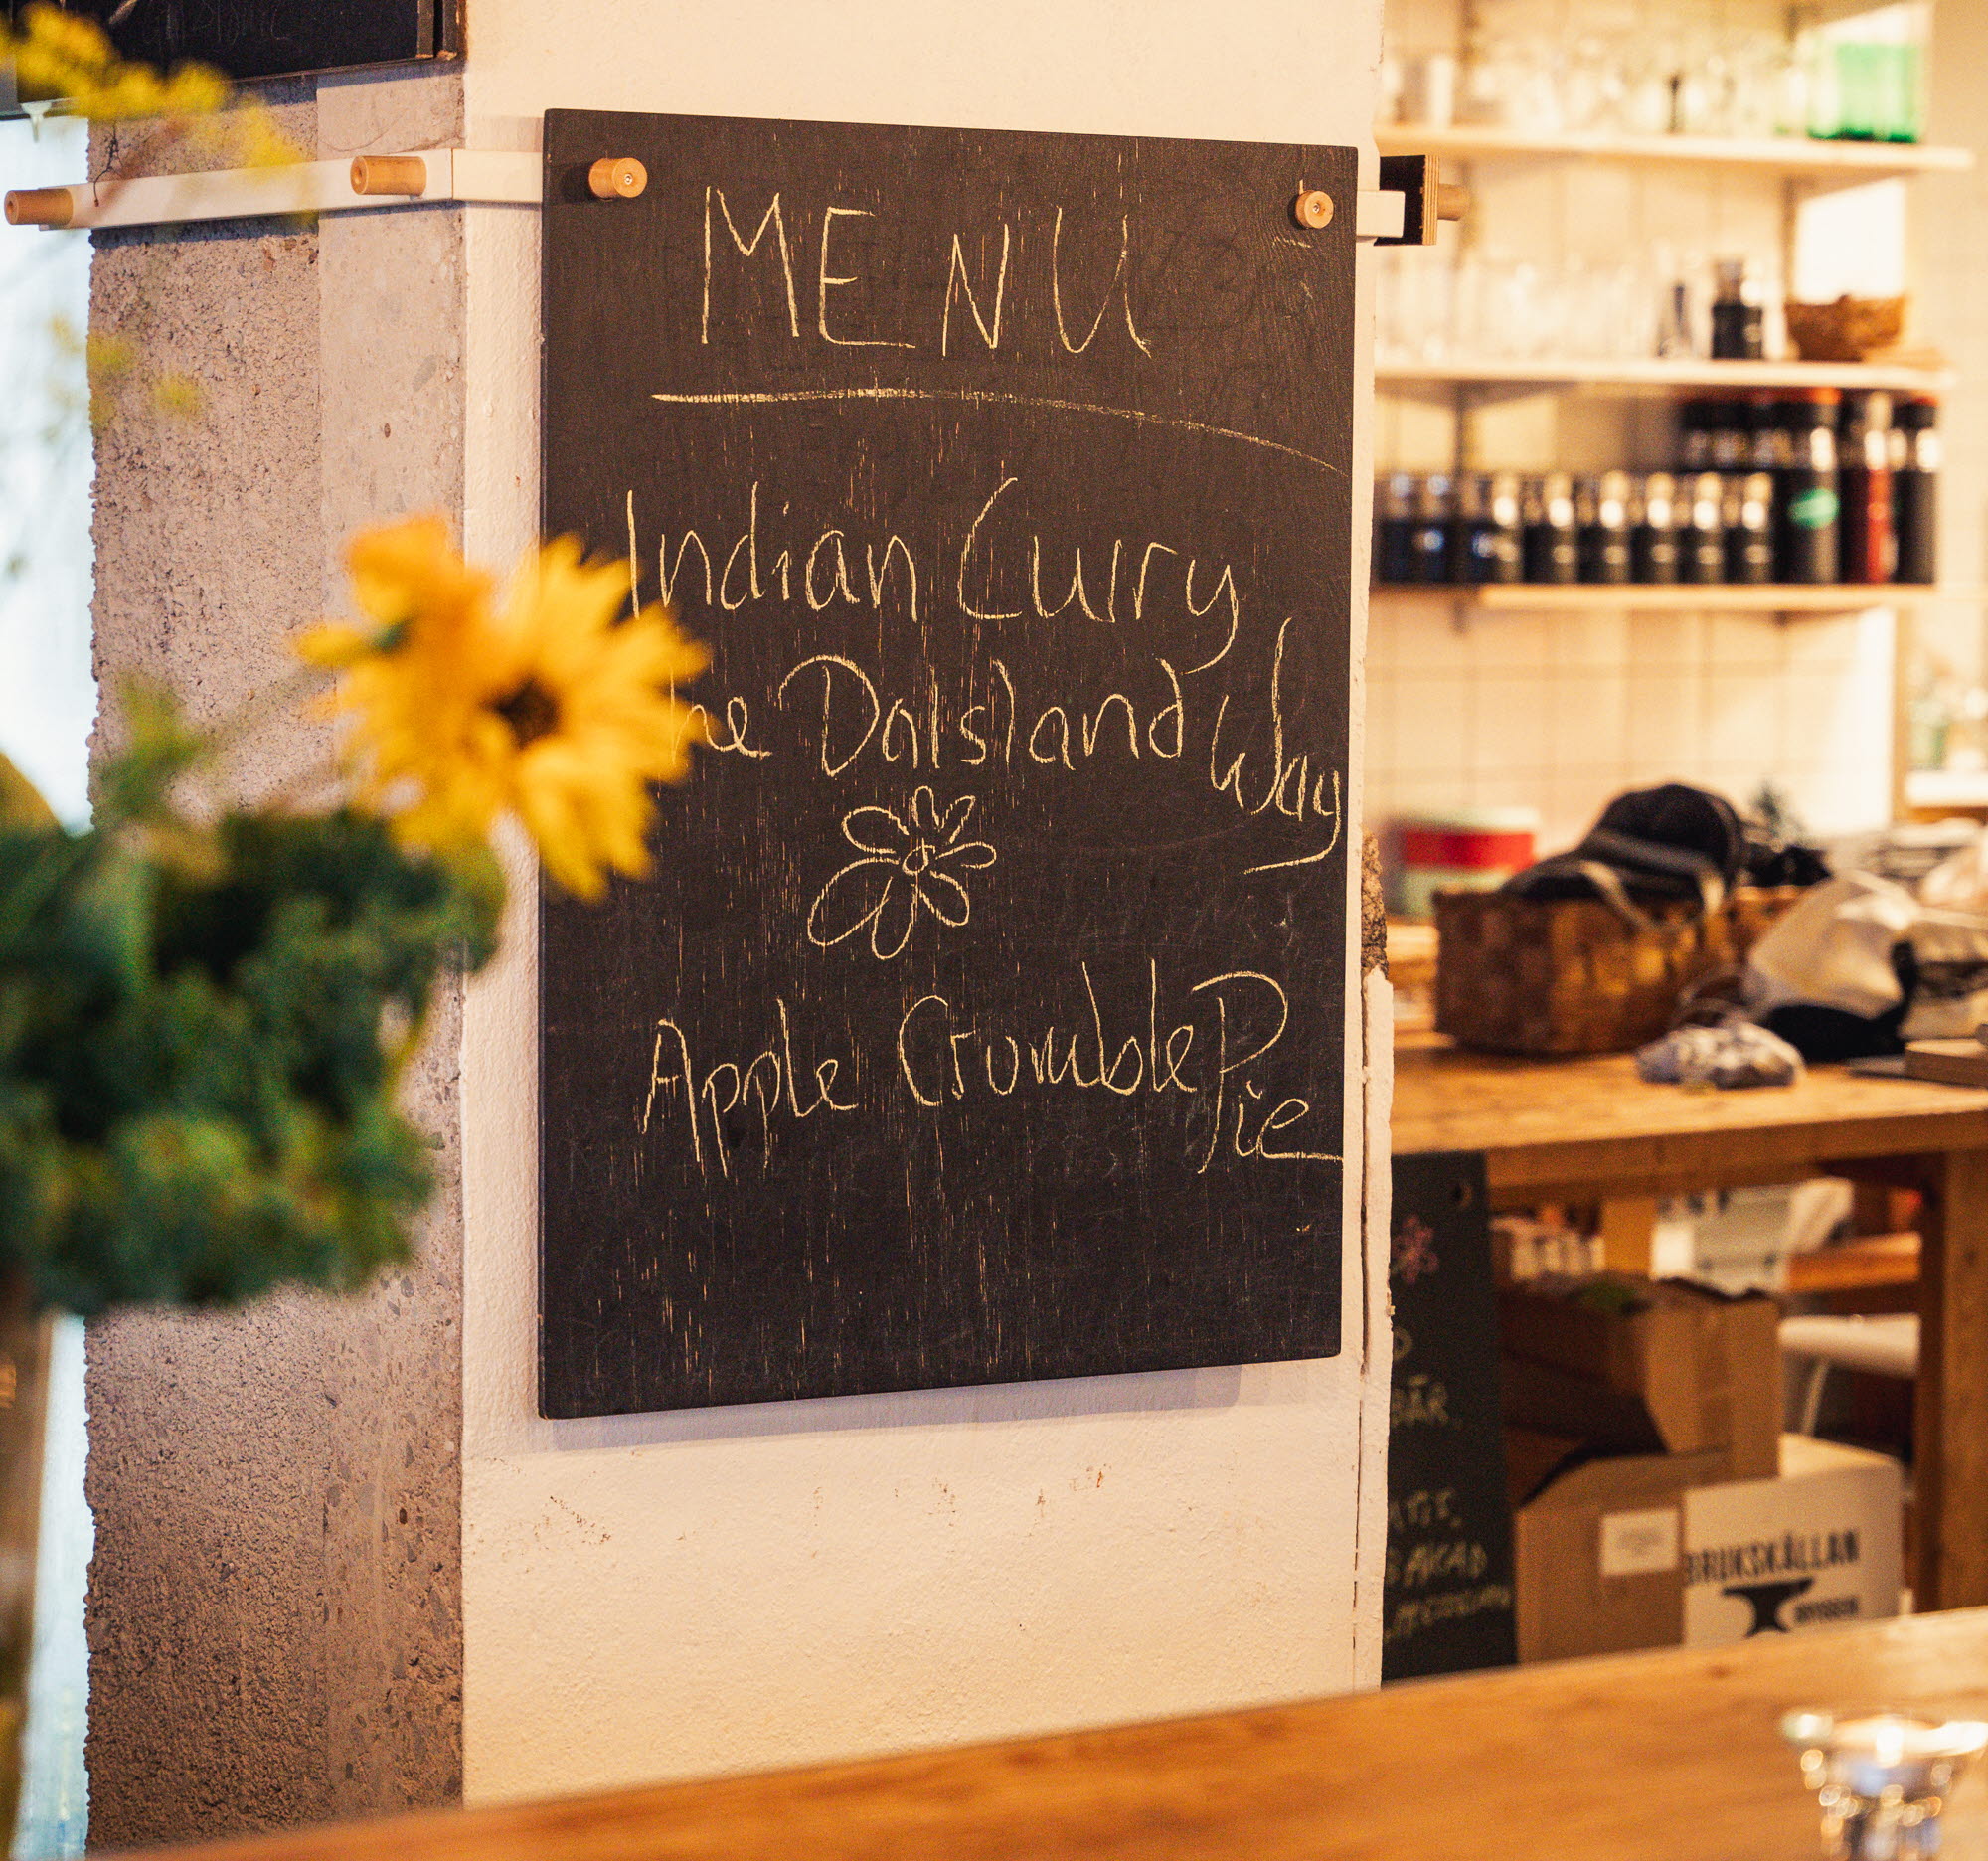 MENU
Indian Curry
he Dalsland Way
Apple Crumble Pie
BÄR
BRUKSKÄLLAN